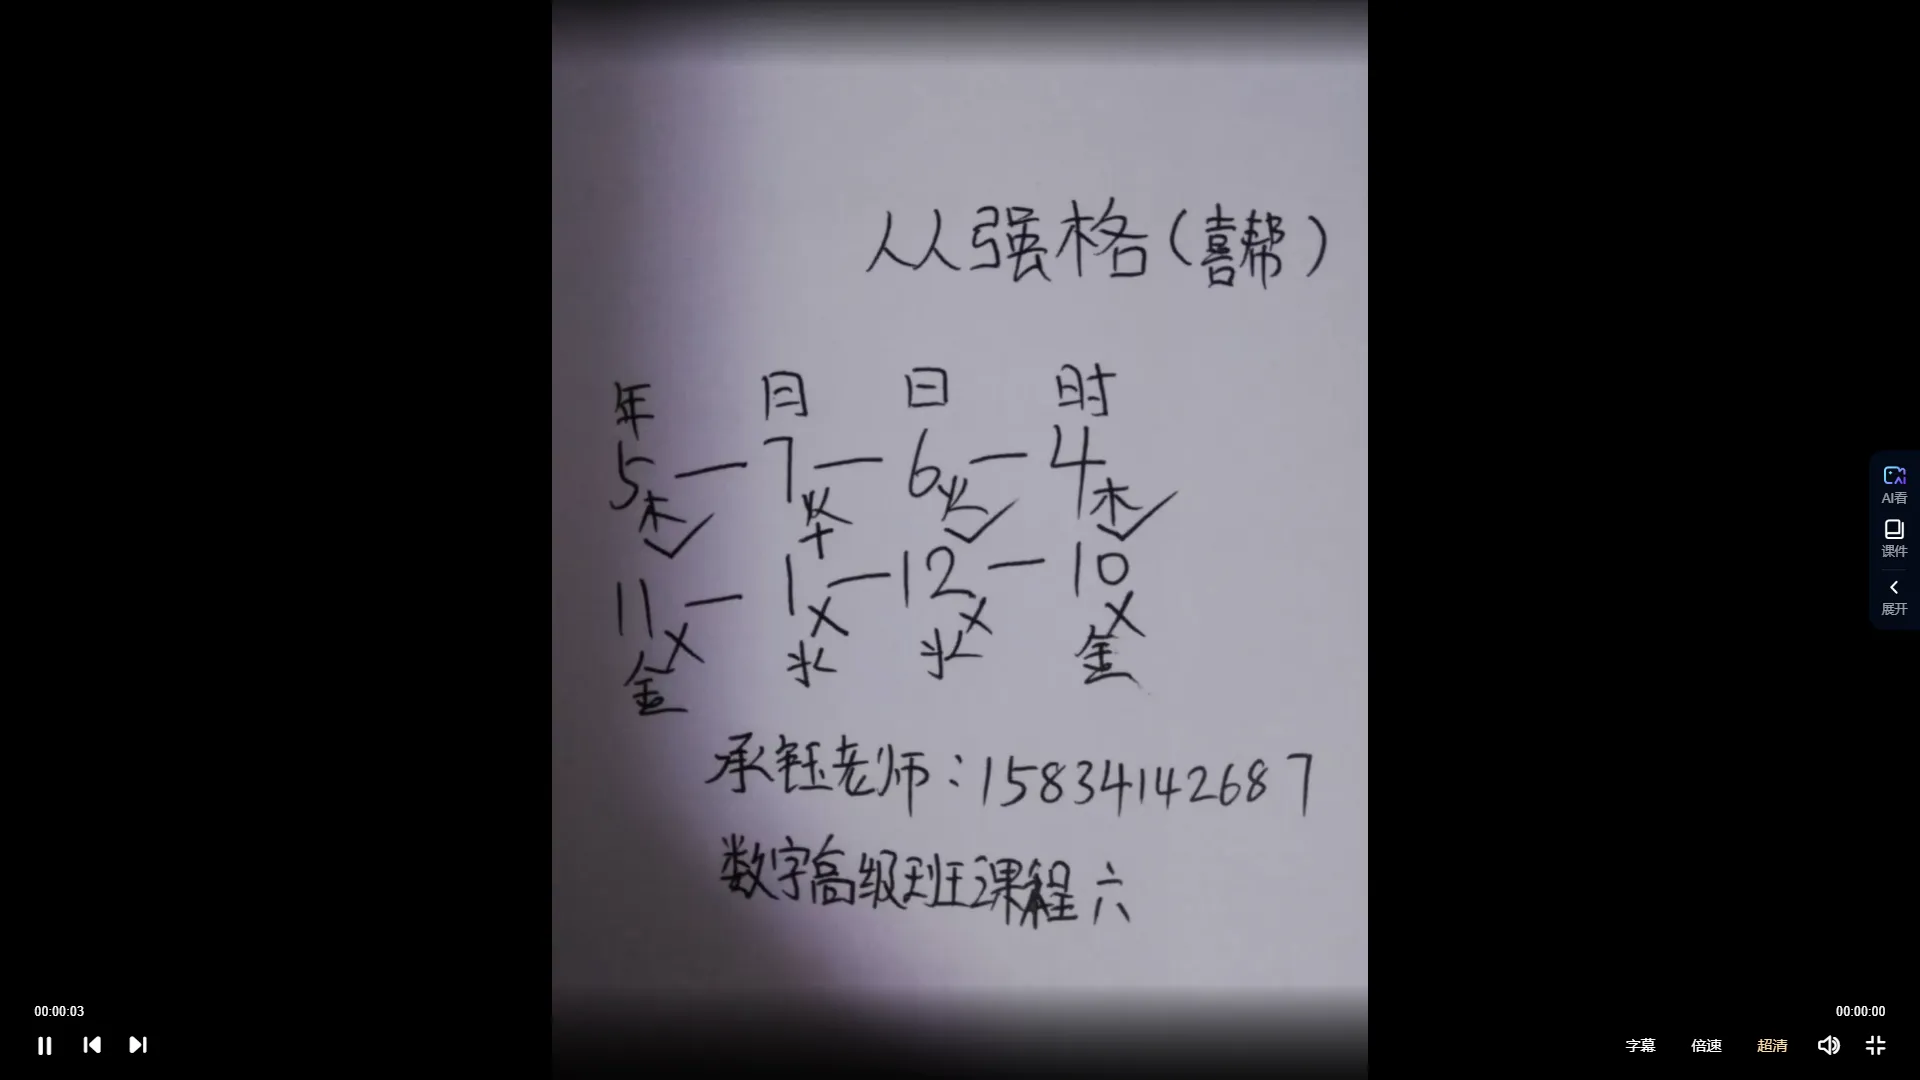 从强格(喜帮)
年 月 日 时
5 — 7 — 6 — 4
木 火 火 木
11 — 1 — 12 — 10
金 水 水 金
承钰老师:15834142687
数字高级班课程六
AI看
课件
展开
00:00:03
00:00:00
字幕 倍速 超清